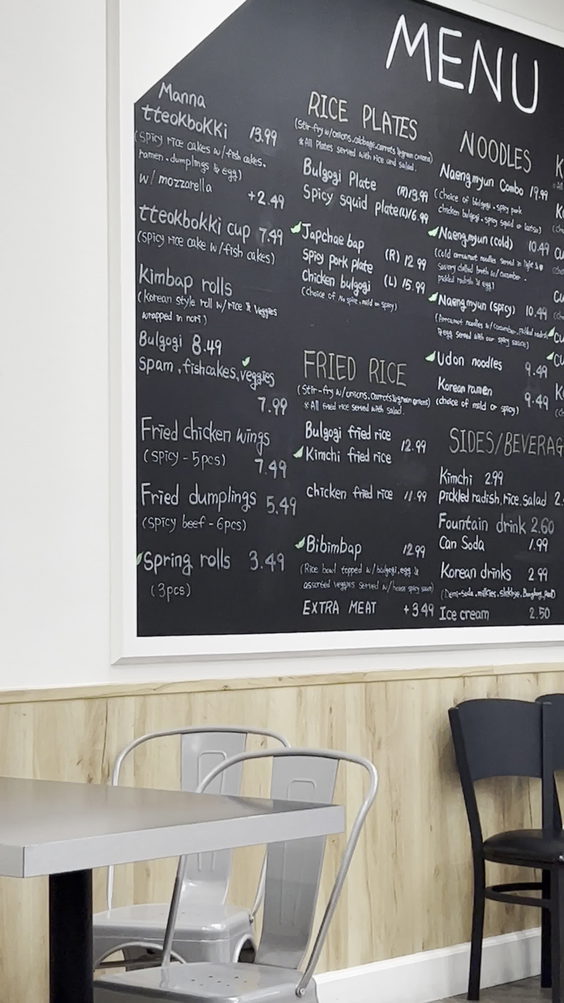 MENU
Manna
tteokbokki 13.99
(spicy rice cakes w/fish cakes.
ramen.dumplings & egg)
w/ mozzarella
+2.49
tteokbokki cup 7.49
(spicy rice cake w/fish cakes)
Kimbap rolls
(Korean style roll w/rice & veggies
wrapped in nori)
Bulgogi 8.49
Spam, fishcakes, veggies
7.99
Fried chicken wings
(spicy - 5pcs) 7.49
Fried dumplings 5.49
(spicy beef - 6pcs)
Spring rolls 3.49
(3pcs)
RICE PLATES
(Stir-fry w/onions.cabbage.carrots &green onions)
*All Plates served with rice and salad.
Bulgogi Plate (R)13.99
Spicy squid plate
Japchae bap
Spicy pork plate (R) 12.99
Chicken bulgogi (L) 15.99
(choice of No spice.mild or spicy)
FRIED RICE
(Stir-fry w/onions.carrots&green onions)
*All fried rice served with salad.
Bulgogi fried rice
12.99
Kimchi fried rice
Chicken fried rice 11.99
Bibimbap 12.99
(Rice bowl topped w/bulgogi.egg &
assorted veggies served w/house spicy sauce)
EXTRA MEAT +3.49
NOODLES
Naengmyun Combo 19.99
(choice of bulgogi.spicy pork
chicken bulgogi.spicy squid or
Naengmyun(cold) 10.49
(cold arrowroot noodles served in light &
savory chilled broth w/cucumber.
pickled radish & egg)
Naengmyun (spicy) 10.49
(Arrowroot noodles w/cucumber.pickled radish
& egg served with our spicy sauce)
Udon noodles 9.49
Korean ramen
(choice of mild or spicy) 9.49
SIDES/BEVERAG
Kimchi 2.99
Pickled radish, rice, salad 2.
Fountain drink 2.60
Can Soda 1.99
Korean drinks 2.99
Ice cream 2.50